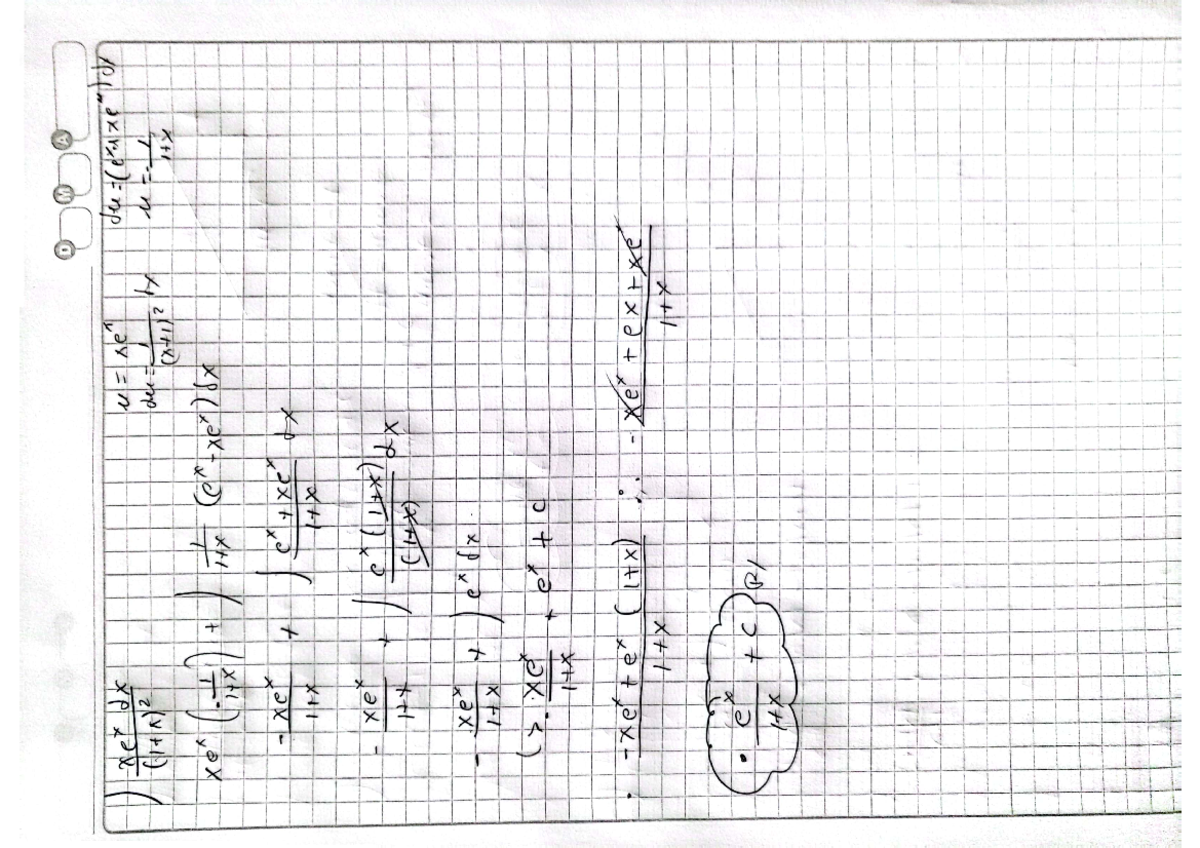 D M A
∫ xeˣ dx / (1+x)² u = xeˣ du = (eˣ + xeˣ) dx
du = 1/(x+1)² dx u = -1/(1+x)
xeˣ (-1/(1+x)) + ∫ 1/(1+x) (eˣ - xeˣ) dx
-xeˣ/(1+x) + ∫ (eˣ + xeˣ)/(1+x) dx
- xeˣ/(1+x) + ∫ eˣ (1+x)/(1+x) dx
- xeˣ/(1+x) + ∫ eˣ dx
(>. xeˣ/(1+x) + eˣ + c
. (-xeˣ + eˣ (1+x))/(1+x) ∴ (-xeˣ + ex + xe)/(1+x)
• eˣ/(1+x) + c R/